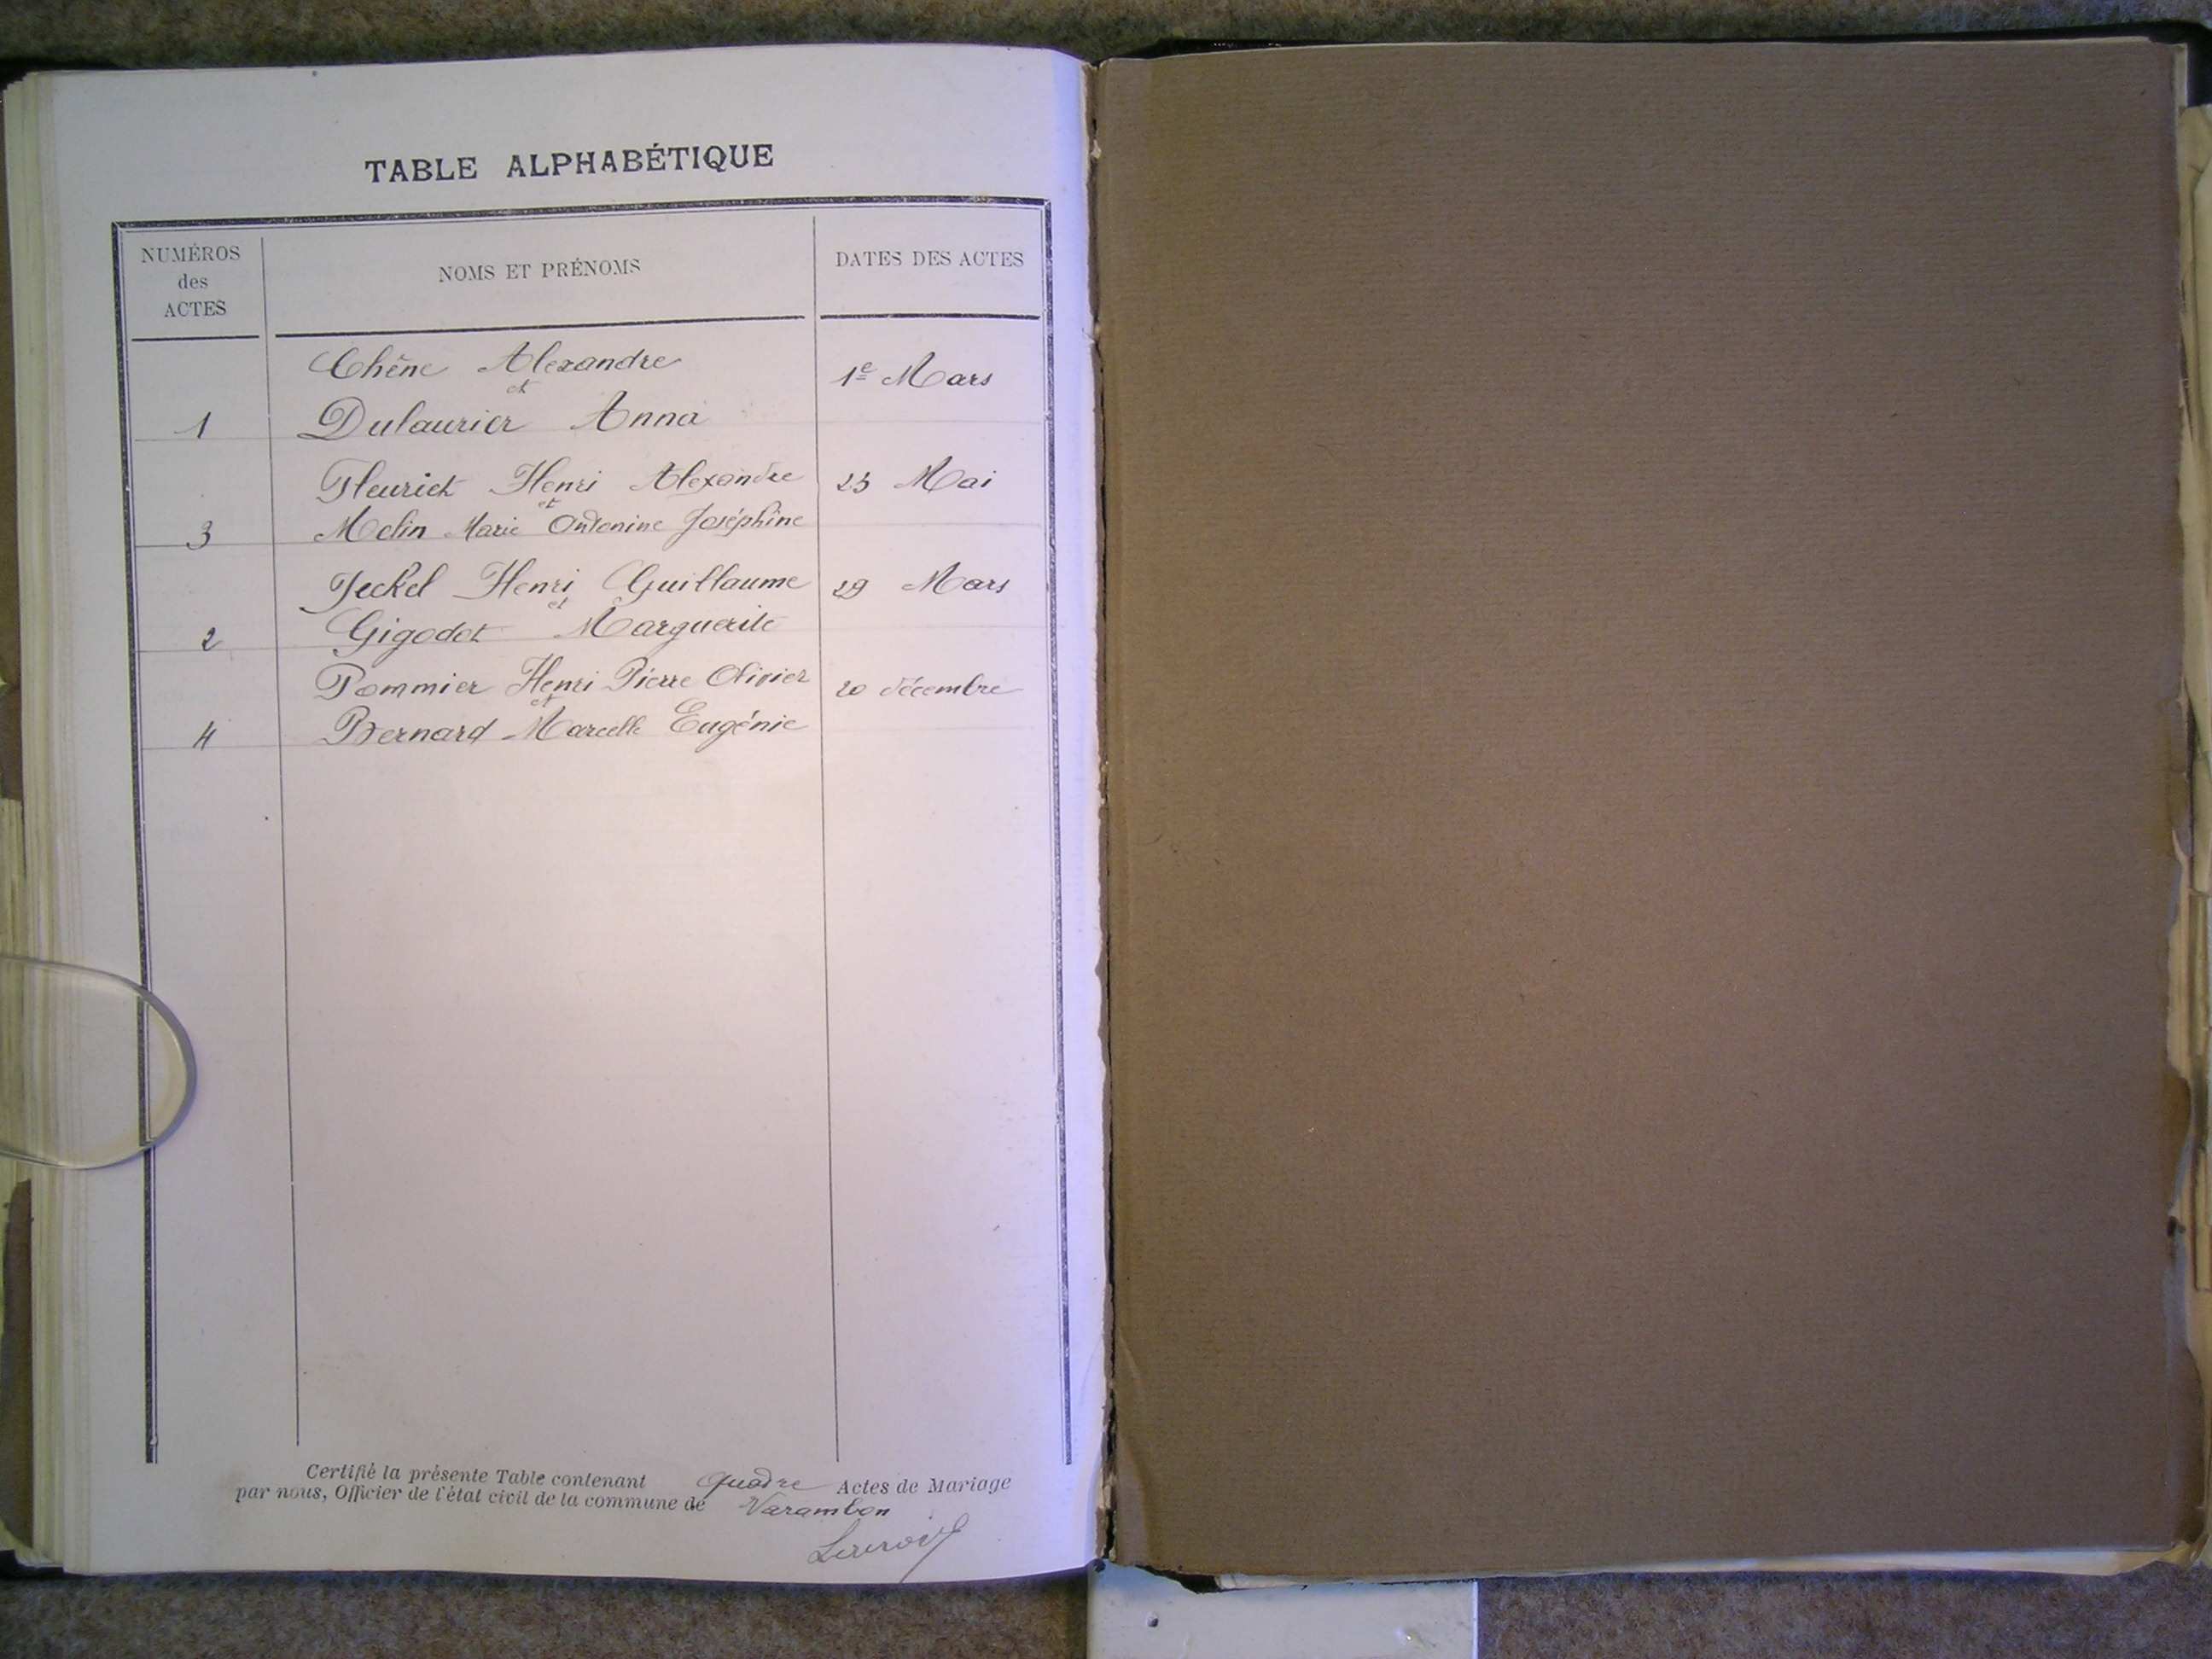 TABLE ALPHABÉTIQUE
NUMÉROS
des
ACTES
NOMS ET PRÉNOMS
DATES DES ACTES
Chêne Alexandre
1e Mars
et
1 Dulaurier Anna
Fleuriet Henri Alexandre 25 Mai
et
3 Melin Marie Antonine Joséphine
Jeckel Henri Guillaume 29 Mars
et
2 Gigodot Marguerite
Pommier Henri Pierre Olivier 20 décembre
et
4 Bernard Marcelle Eugénie
Certifié la présente Table contenant quatre Actes de Mariage
par nous, Officier de l'état civil de la commune de Varambon